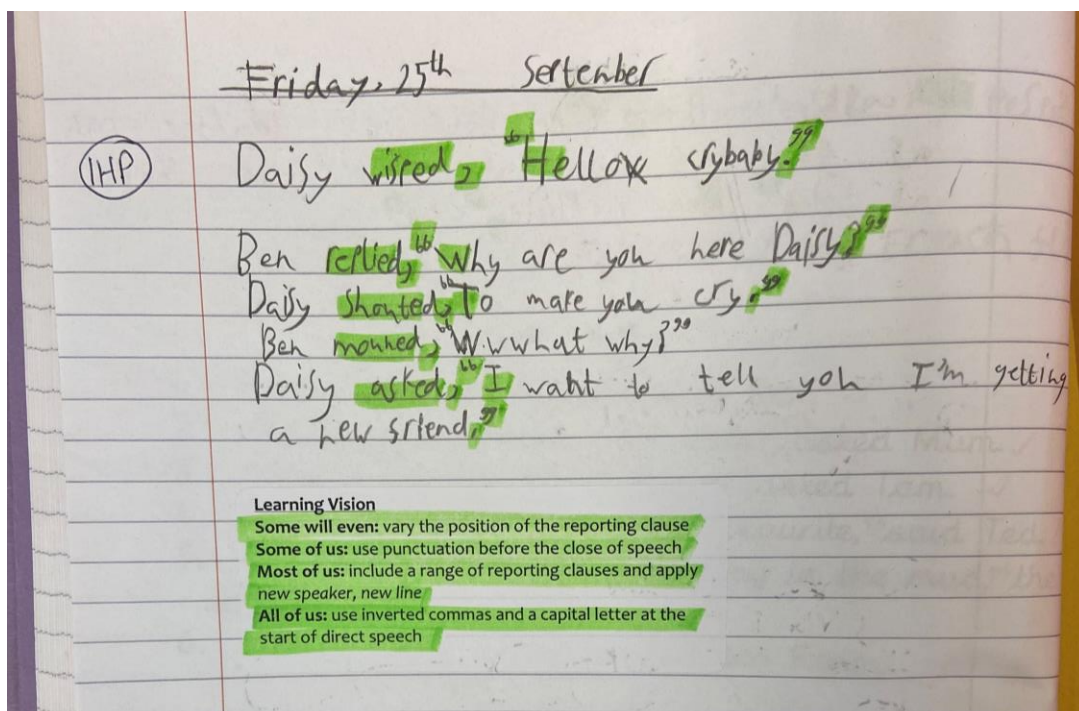 Friday, 25th Septenber
IHP
Daisy wisped, "Hellox crybaby."
Ben replied, "Why are you here Daisy?"
Daisy shouted, "To make you cry."
Ben mouned, "W.wwhat why?"
Daisy asked, "I waht to tell yoh I'm getting
a new sriend."
Learning Vision
Some will even: vary the position of the reporting clause
Some of us: use punctuation before the close of speech
Most of us: include a range of reporting clauses and apply
new speaker, new line
All of us: use inverted commas and a capital letter at the
start of direct speech